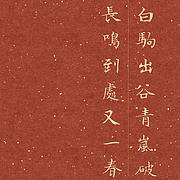 白駒出谷青嵐破
長鳴到處又一春